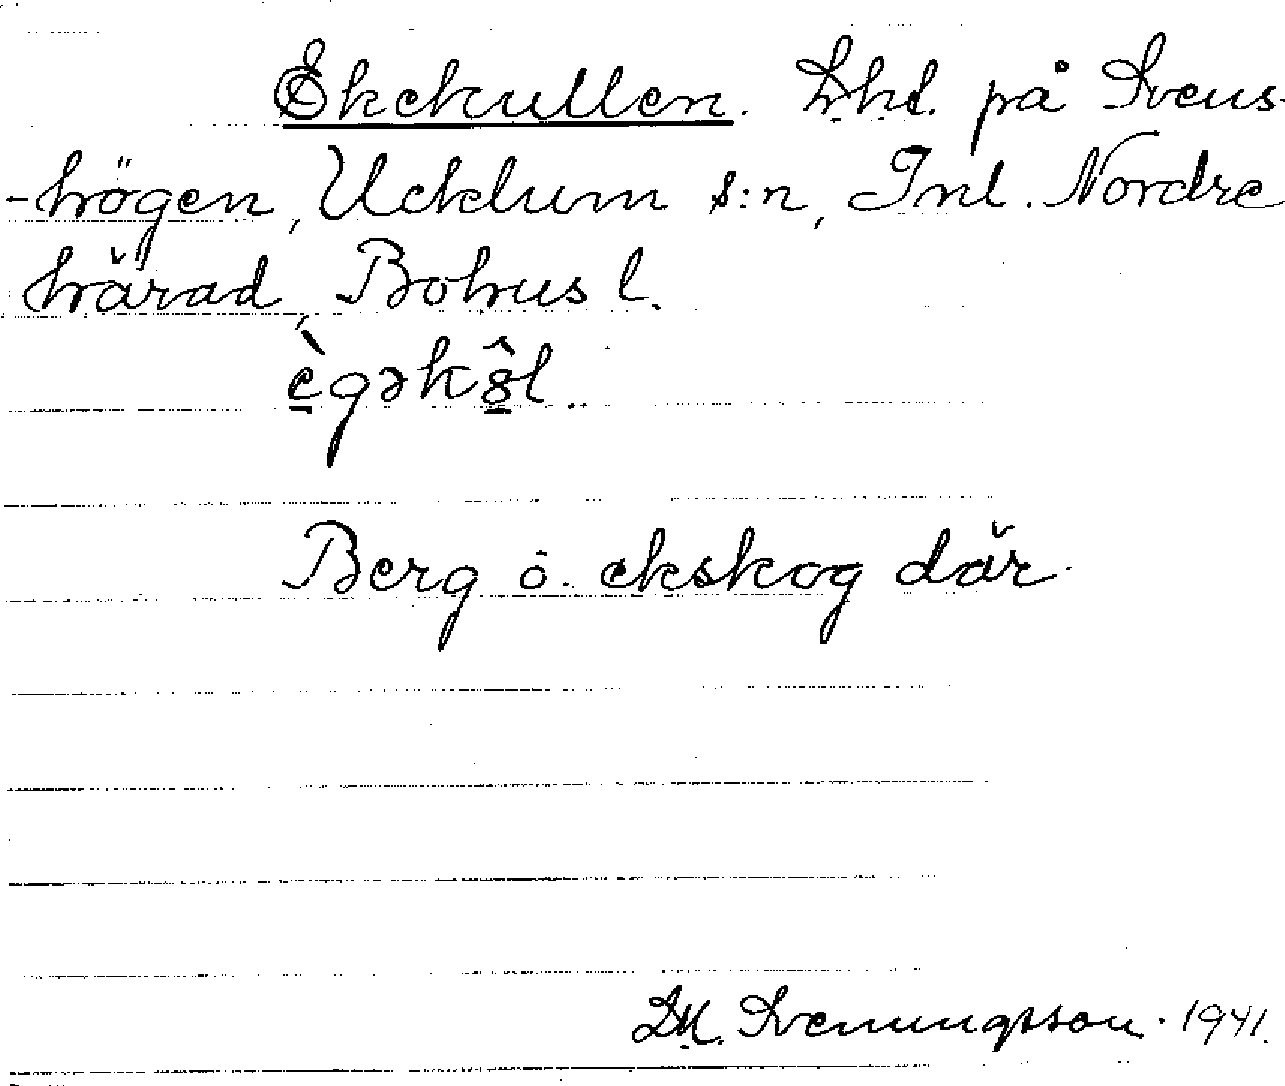 Ekekullen. Lhd. på Svens-
-högen, Ucklum s:n, Inl. Nordre
härad, Bohus l.
ègəkôl.
Berg o. ekskog där.
Svenningsson. 1941.